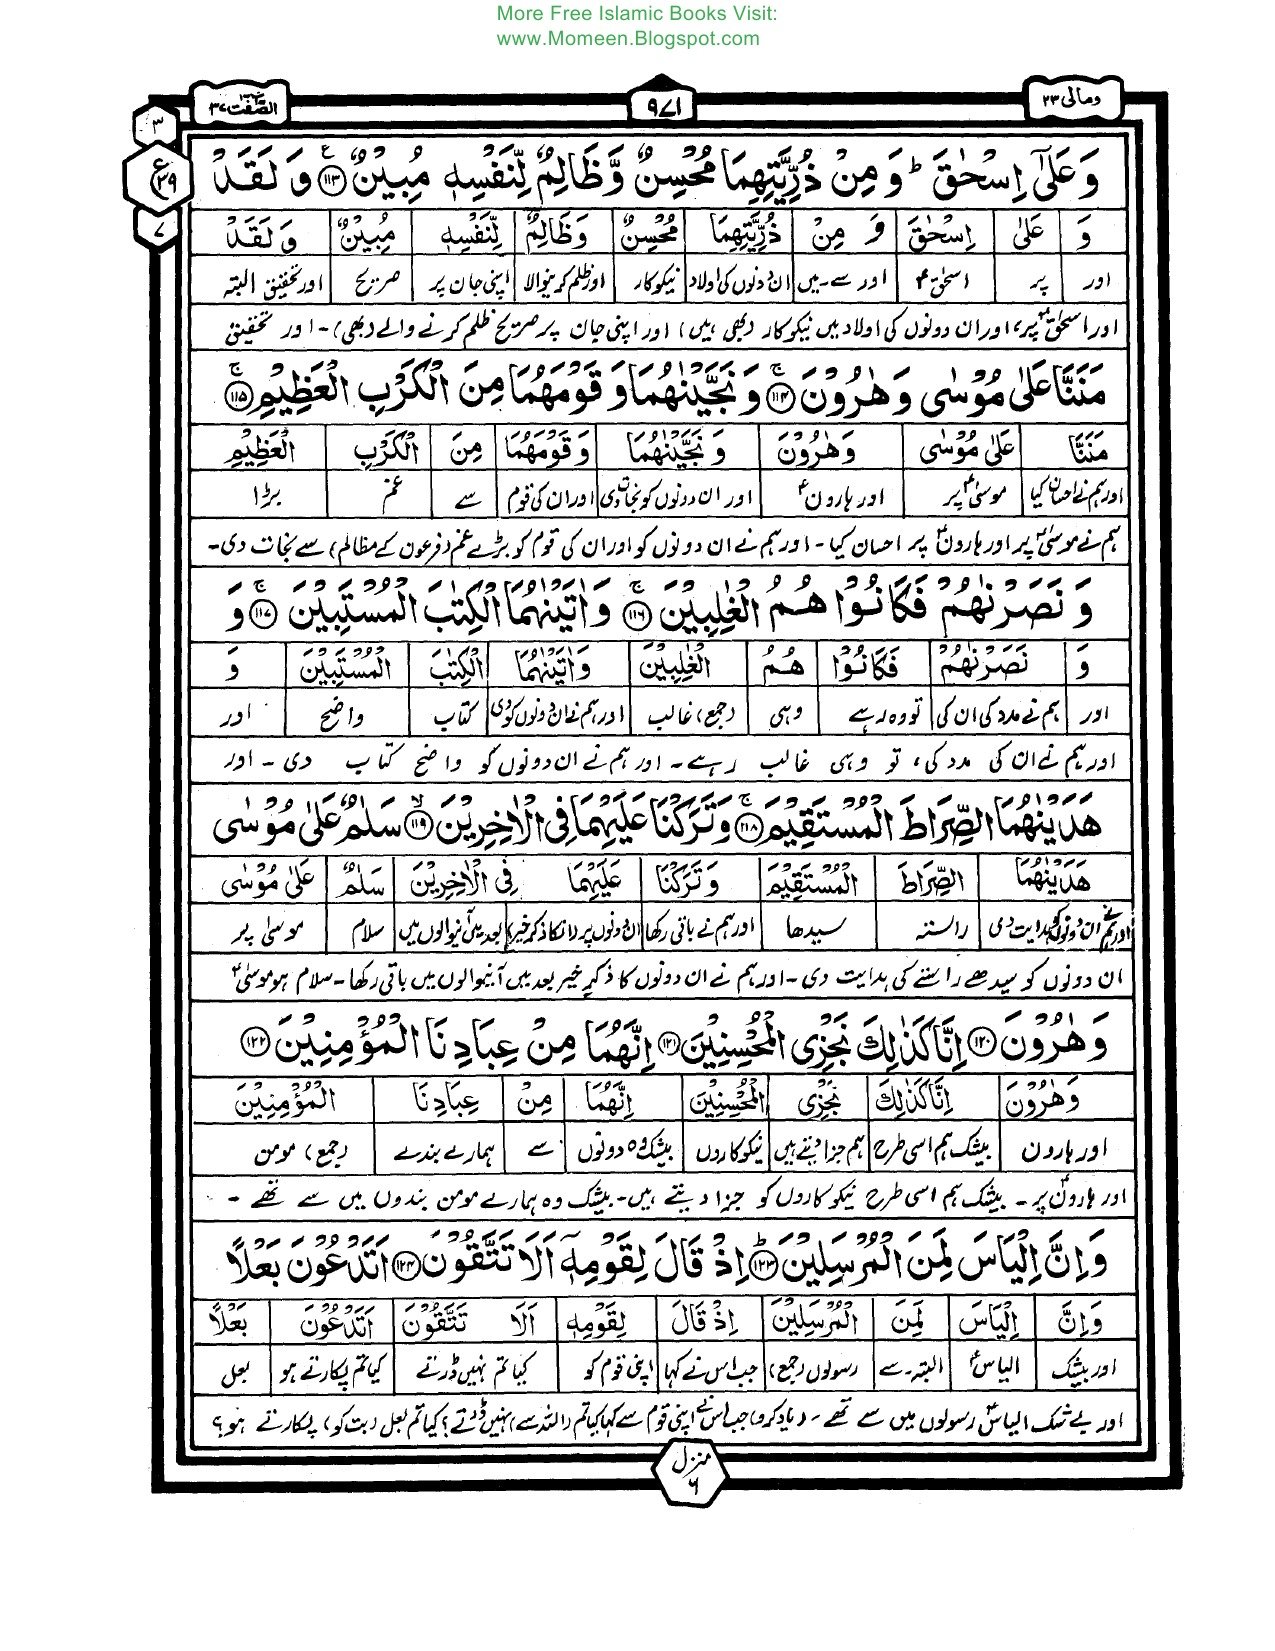 More Free Islamic Books Visit:
www.Momeen.Blogspot.com
ومالی ۲۳
۹۷۱
الصّٰفّٰت ۳۷
۳
ع ۲۹
۷
وَ عَلٰۤی اِسْحٰقَ ؕ وَ مِنْ ذُرِّیَّتِهِمَا مُحْسِنٌ وَّ ظَالِمٌ لِّنَفْسِهٖ مُبِیْنٌ ۝۱۱۳ وَ لَقَدْ
وَ عَلٰی اِسْحٰقَ وَ مِنْ ذُرِّیَّتِهِمَا مُحْسِنٌ وَّ ظَالِمٌ لِّنَفْسِهٖ مُبِیْنٌ وَ لَقَدْ
اور پر اسحٰقؑ اور سے۔میں ان دونوں کی اولاد نیکوکار اور ظلم کرنیوالا اپنی جان پر صریح اور تحقیق البتہ
اور اسحٰقؑ پر، اور ان دونوں کی اولاد میں نیکوکار (بھی ہیں) اور اپنی جان پر صریح ظلم کرنے والے (بھی)۔ اور تحقیق
مَنَنَّا عَلٰی مُوْسٰی وَ هٰرُوْنَ ۝۱۱۴ وَ نَجَّیْنٰهُمَا وَ قَوْمَهُمَا مِنَ الْكَرْبِ الْعَظِیْمِ ۝۱۱۵
مَنَنَّا عَلٰی مُوْسٰی وَ هٰرُوْنَ وَ نَجَّیْنٰهُمَا وَ قَوْمَهُمَا مِنَ الْكَرْبِ الْعَظِیْمِ
اور ہم نے احسان کیا موسیٰؑ پر اور ہارونؑ اور ان دونوں کو نجات دی اور ان کی قوم سے غم بڑا
ہم نے موسیٰؑ پر اور ہارونؑ پر احسان کیا۔ اور ہم نے ان دونوں کو اور ان کی قوم کو بڑے غم (فرعون کے مظالم) سے نجات دی۔
وَ نَصَرْنٰهُمْ فَكَانُوْا هُمُ الْغٰلِبِیْنَ ۝۱۱۶ وَ اٰتَیْنٰهُمَا الْكِتٰبَ الْمُسْتَبِیْنَ ۝۱۱۷ وَ
وَ نَصَرْنٰهُمْ فَكَانُوْا هُمُ الْغٰلِبِیْنَ وَ اٰتَیْنٰهُمَا الْكِتٰبَ الْمُسْتَبِیْنَ وَ
اور ہم نے مدد کی ان کی تو وہ رہے وہی (جمع) غالب اور ہم نے ان دونوں کو دی کتاب واضح اور
اور ہم نے ان کی مدد کی، تو وہی غالب رہے۔ اور ہم نے ان دونوں کو واضح کتاب دی۔ اور
هَدَیْنٰهُمَا الصِّرَاطَ الْمُسْتَقِیْمَ ۝۱۱۸ وَ تَرَكْنَا عَلَیْهِمَا فِی الْاٰخِرِیْنَ ۝۱۱۹ سَلٰمٌ عَلٰی مُوْسٰی
هَدَیْنٰهُمَا الصِّرَاطَ الْمُسْتَقِیْمَ وَ تَرَكْنَا عَلَیْهِمَا فِی الْاٰخِرِیْنَ سَلٰمٌ عَلٰی مُوْسٰی
اور ہم نے ان دونوں کو ہدایت دی راستہ سیدھا اور ہم نے باقی رکھا ان دونوں پر (انکا ذکر خیر) بعد میں آنیوالوں میں سلام موسیٰ پر
ان دونوں کو سیدھے راستے کی ہدایت دی۔ اور ہم نے ان دونوں کا ذکرِ خیر بعد میں آنیوالوں میں باقی رکھا۔ سلام ہو موسیٰؑ
وَ هٰرُوْنَ ۝۱۲۰ اِنَّا كَذٰلِكَ نَجْزِی الْمُحْسِنِیْنَ ۝۱۲۱ اِنَّهُمَا مِنْ عِبَادِنَا الْمُؤْمِنِیْنَ ۝۱۲۲
وَ هٰرُوْنَ اِنَّا كَذٰلِكَ نَجْزِی الْمُحْسِنِیْنَ اِنَّهُمَا مِنْ عِبَادِنَا الْمُؤْمِنِیْنَ
اور ہارون بیشک ہم اسی طرح ہم جزا دیتے ہیں نیکوکاروں بیشک وہ دونوں سے ہمارے بندے (جمع) مومن
اور ہارونؑ پر۔ بیشک ہم اسی طرح نیکوکاروں کو جزا دیتے ہیں۔ بیشک وہ ہمارے مومن بندوں میں سے تھے۔
وَ اِنَّ اِلْیَاسَ لَمِنَ الْمُرْسَلِیْنَ ۝۱۲۳ اِذْ قَالَ لِقَوْمِهٖۤ اَلَا تَتَّقُوْنَ ۝۱۲۴ اَتَدْعُوْنَ بَعْلًا
وَ اِنَّ اِلْیَاسَ لَمِنَ الْمُرْسَلِیْنَ اِذْ قَالَ لِقَوْمِهٖ اَلَا تَتَّقُوْنَ اَتَدْعُوْنَ بَعْلًا
اور بیشک الیاسؑ البتہ۔سے رسولوں (جمع) جب اس نے کہا اپنی قوم کو کیا تم نہیں ڈرتے کیا تم پکارتے ہو بعل
اور بے شک الیاسؑ رسولوں میں سے تھے۔ (یاد کرو) جب اس نے اپنی قوم سے کہا کیا تم (اللہ سے) نہیں ڈرتے؟ کیا تم بعل (بت کو) پکارتے ہو؟
منزل
۶